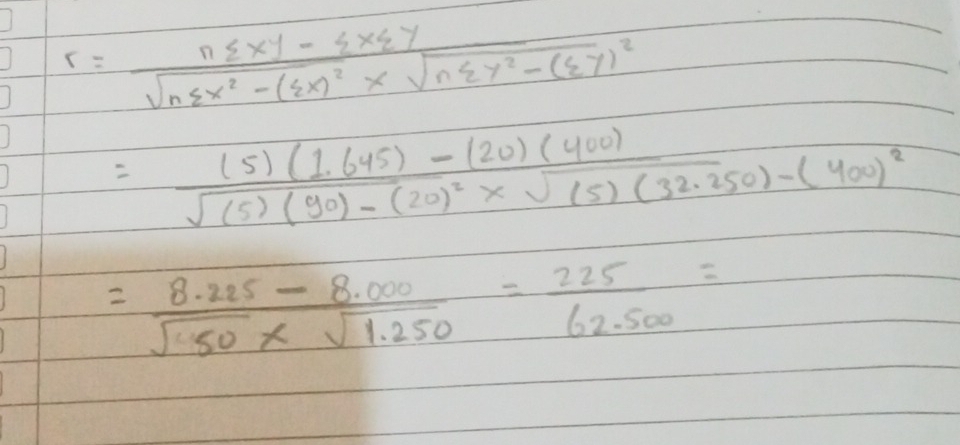 r = n Σxy - ΣxΣy / √nΣx² - (Σx)² × √nΣy² - (Σy)²
= (5)(1.645) - (20)(400) / √(5)(90) - (20)² × √(5)(32.250) - (400)²
= 8.225 - 8.000 / √50 × √1.250 = 225 / 62.500 =